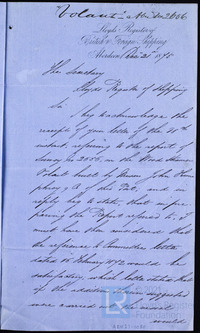 "Volant" Abn No 2686
Lloyd's Register of
British & Foreign Shipping
Aberdeen, Decr 21st 1875
The Secretary
Lloyds Register of Shipping
Sir,
I beg to acknowledge the
receipt of your letter of the
instant, referring to the report of
Survey No 2686, on the Wood Steamer
Volant built by Messrs John
of this Port, and in
reply beg to state, that in pre-
paring the Report referred to, I
must have then considered that
the reference to Committee's letter
dated 18 February 1875 would be
satisfactory, which letter states that
if the additions therein suggested
were carried out the vessel
would